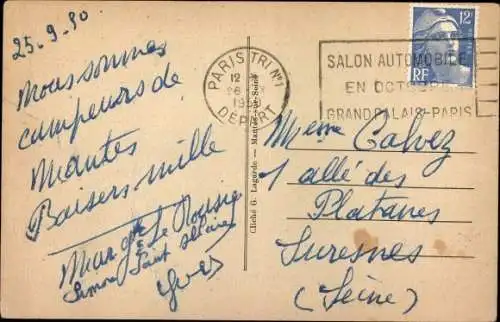 25-9-50
Nous sommes
campeurs de
Mantes
Baisers mille
Yves
PARIS TRI N°1
12
26
DÉPART
SALON AUTOMOBILE
EN OCTOBRE
GRAND PALAIS-PARIS
12F
RF
Cliché G. Lagorde — Mantes-sur-Seine
Mme Calvez
1 allé des
Platanes
Suresnes
(Seine)